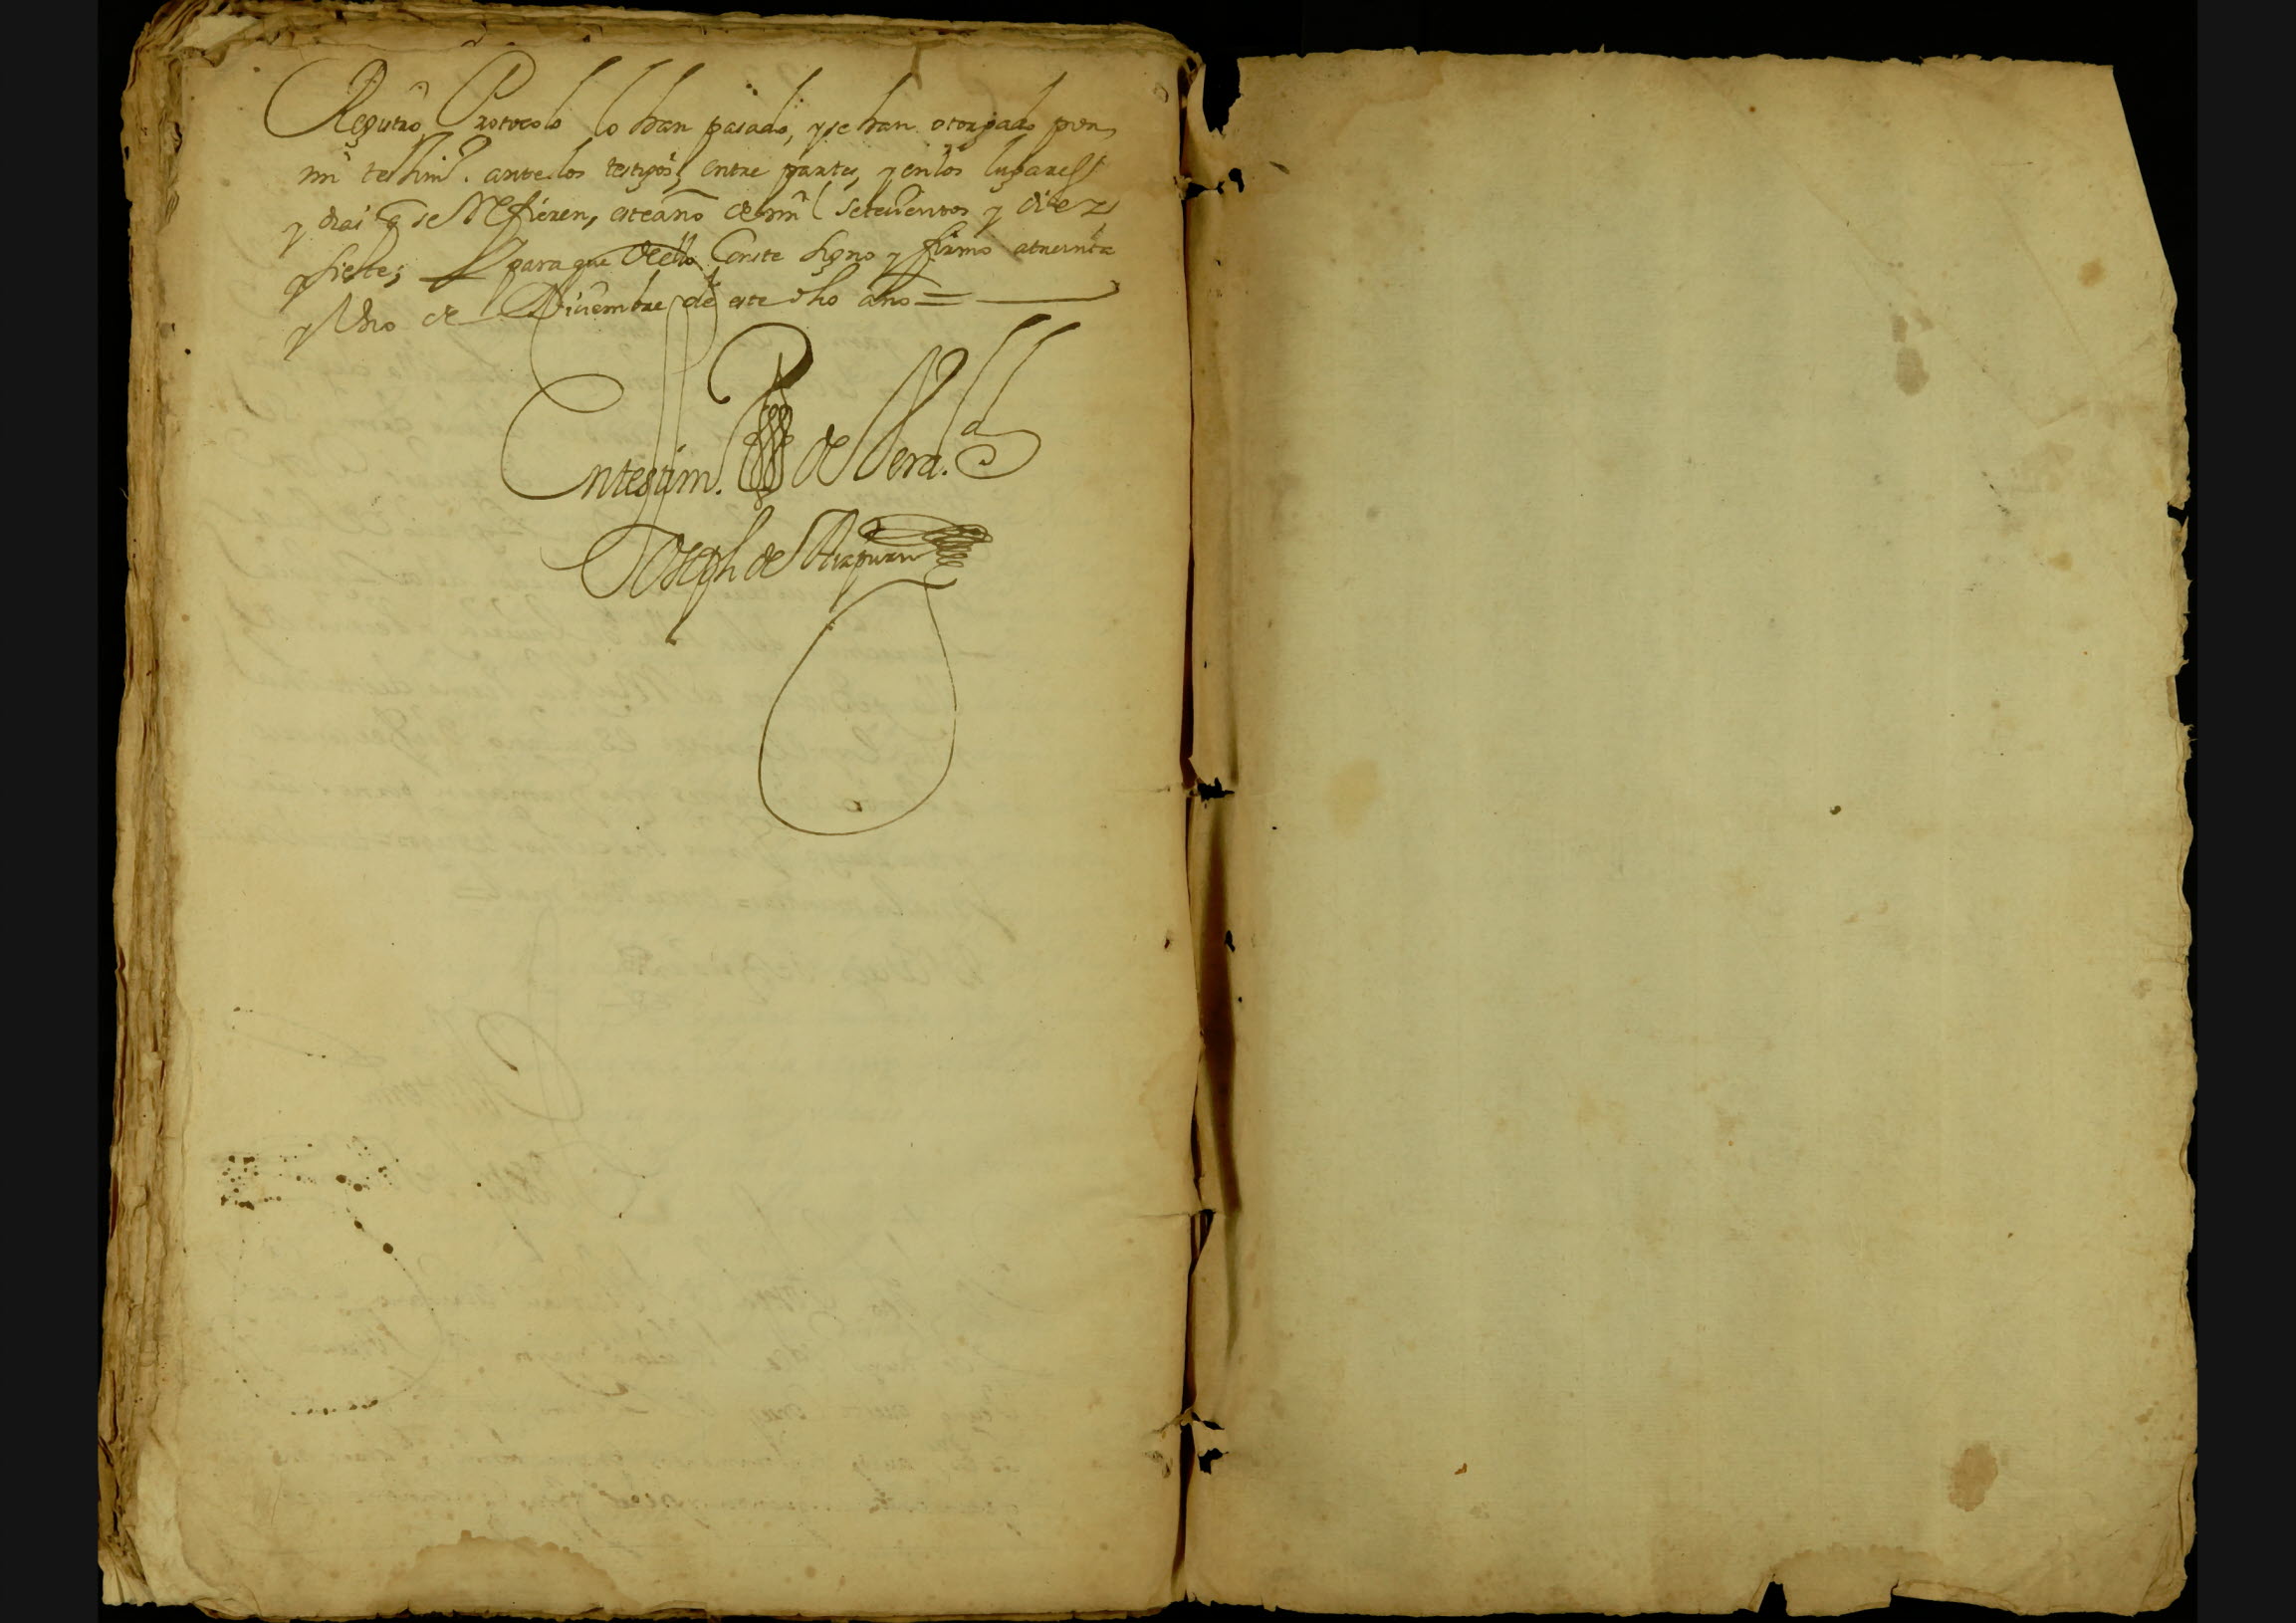 Registro Protocolo lo han pasado, y se han otorgado por
mi testim.º ante los testigos, entre partes, y en los lugares
y dias q̃ se Refieren, este año de mil setecientos y diez
y siete; y para que de ello Conste signo y firmo a treinta
y Uno de Diciembre de este dho año =
En testim.º de Verd.ad
Joseph de